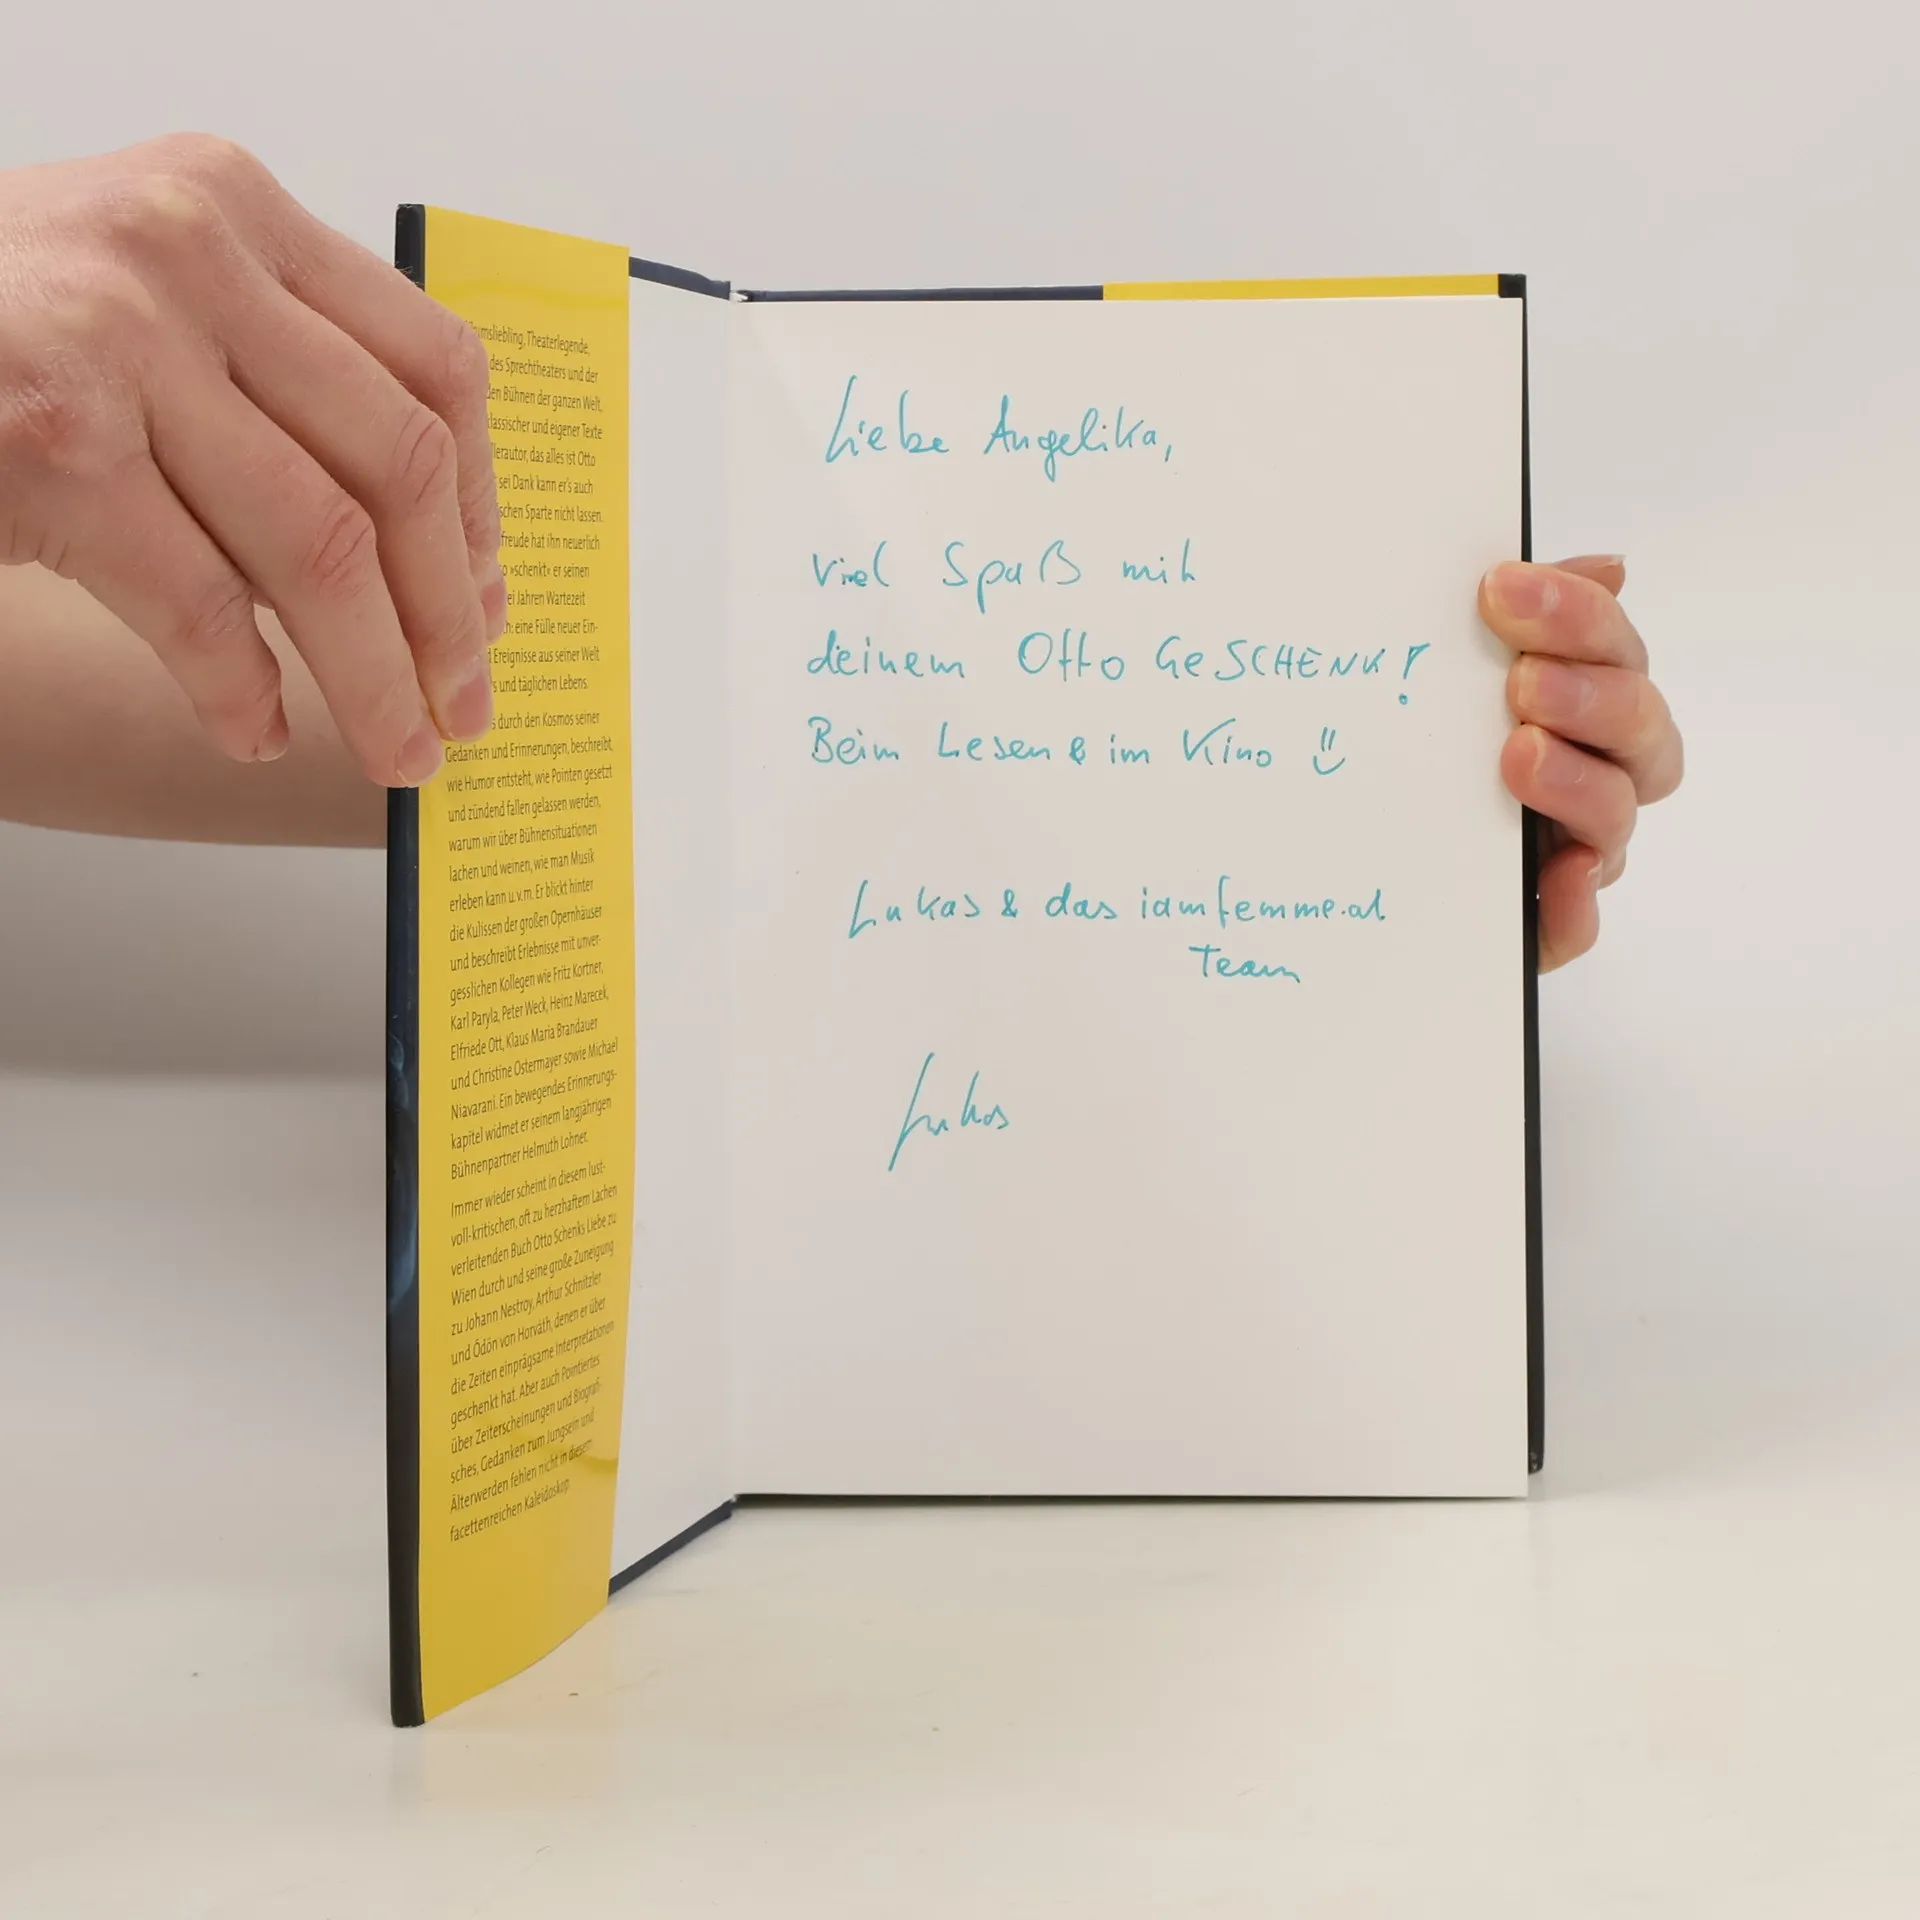 umsliebling, Theaterlegende,
des Sprechtheaters und der
den Bühnen der ganzen Welt,
klassischer und eigener Texte
llerautor, das alles ist Otto
sei Dank kann er's auch
ischen Sparte nicht lassen.
freude hat ihn neuerlich
so »schenkt« er seinen
ei Jahren Wartezeit
h: eine Fülle neuer Ein-
d Ereignisse aus seiner Welt
s und täglichen Lebens.
s durch den Kosmos seiner
Gedanken und Erinnerungen, beschreibt,
wie Humor entsteht, wie Pointen gesetzt
und zündend fallen gelassen werden,
warum wir über Bühnensituationen
lachen und weinen, wie man Musik
erleben kann u.v.m. Er blickt hinter
die Kulissen der großen Opernhäuser
und beschreibt Erlebnisse mit unver-
gesslichen Kollegen wie Fritz Kortner,
Karl Paryla, Peter Weck, Heinz Marecek,
Elfriede Ott, Klaus Maria Brandauer
und Christine Ostermayer sowie Michael
Niavarani. Ein bewegendes Erinnerungs-
kapitel widmet er seinem langjährigen
Bühnenpartner Helmuth Lohner.
Immer wieder scheint in diesem lust-
voll-kritischen, oft zu herzhaftem Lachen
verleitenden Buch Otto Schenks Liebe zu
Wien durch und seine große Zuneigung
zu Johann Nestroy, Arthur Schnitzler
und Ödön von Horváth, denen er über
die Zeiten einprägsame Interpretationen
geschenkt hat. Aber auch Pointiertes
über Zeiterscheinungen und Biografi-
sches, Gedanken zum Jungsein und
Älterwerden fehlen nicht in diesem
facettenreichen Kaleidoskop.
Liebe Angelika,
viel Spaß mit
deinem Otto GeSCHENK!
Beim Lesen & im Kino
Lukas & das iamfemme.at
Team
Lukas